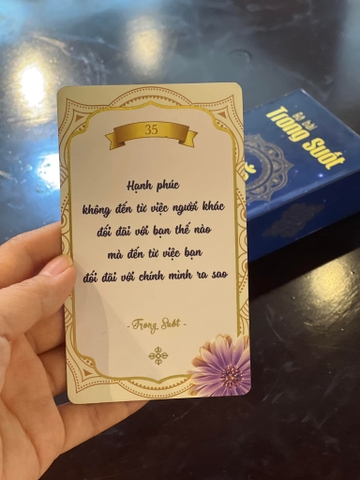 35
Hạnh phúc
không đến từ việc người khác
đối đãi với bạn thế nào
mà đến từ việc bạn
đối đãi với chính mình ra sao
- Trong Suốt -
Bộ bài
Trong Suốt